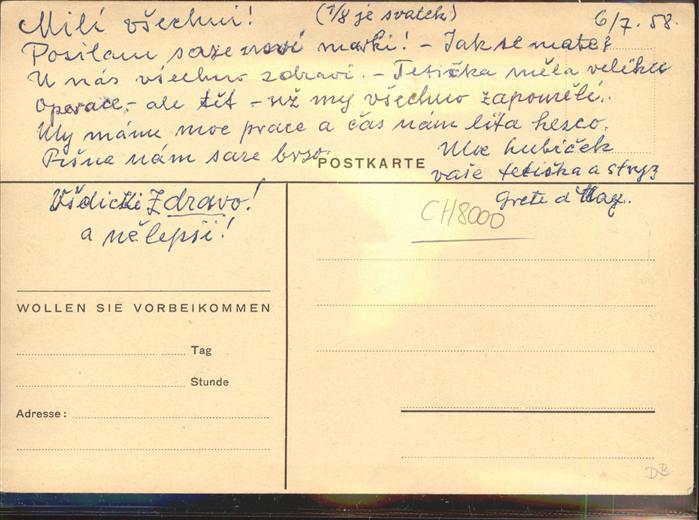 Milí všechni! (1/8 je svatek) 6/7. 58.
Posílam saze nový marki! - Jak se mateš
U nás všechno zdraví. - Tetička měla veliku
operace, - ale tět - už my všechno zapoměli.
My máme moc prace a čas nám líta hezco.
Pišne nám saze brzo.
POSTKARTE
Moc hubiček
vaše tetička a stryz
Grete a
Všdicki Zdravo!
a nělepší!
CH8000
WOLLEN SIE VORBEIKOMMEN
Tag
Stunde
Adresse:
DB